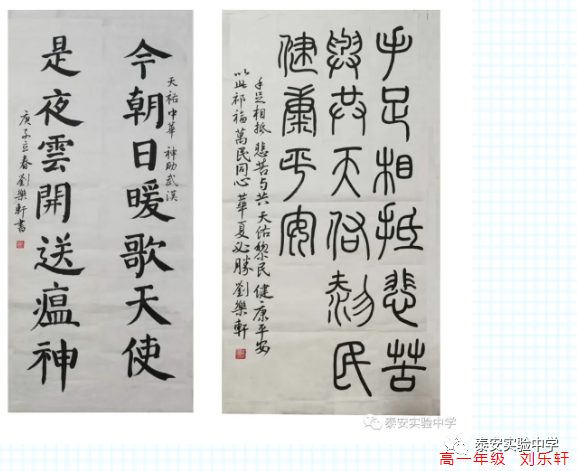 今朝日暖歌天使
天祐中華 神助武漢
是夜雲開送瘟神
庚子立春劉樂軒書
手足相抵悲苦
與共天佑黎民
健康平安
手足相抵 悲苦与共 天佑黎民 健康平安
以此祁福萬民同心 華夏必勝 劉樂軒
泰安实验中学
泰安实验中学
高一年级 刘乐轩